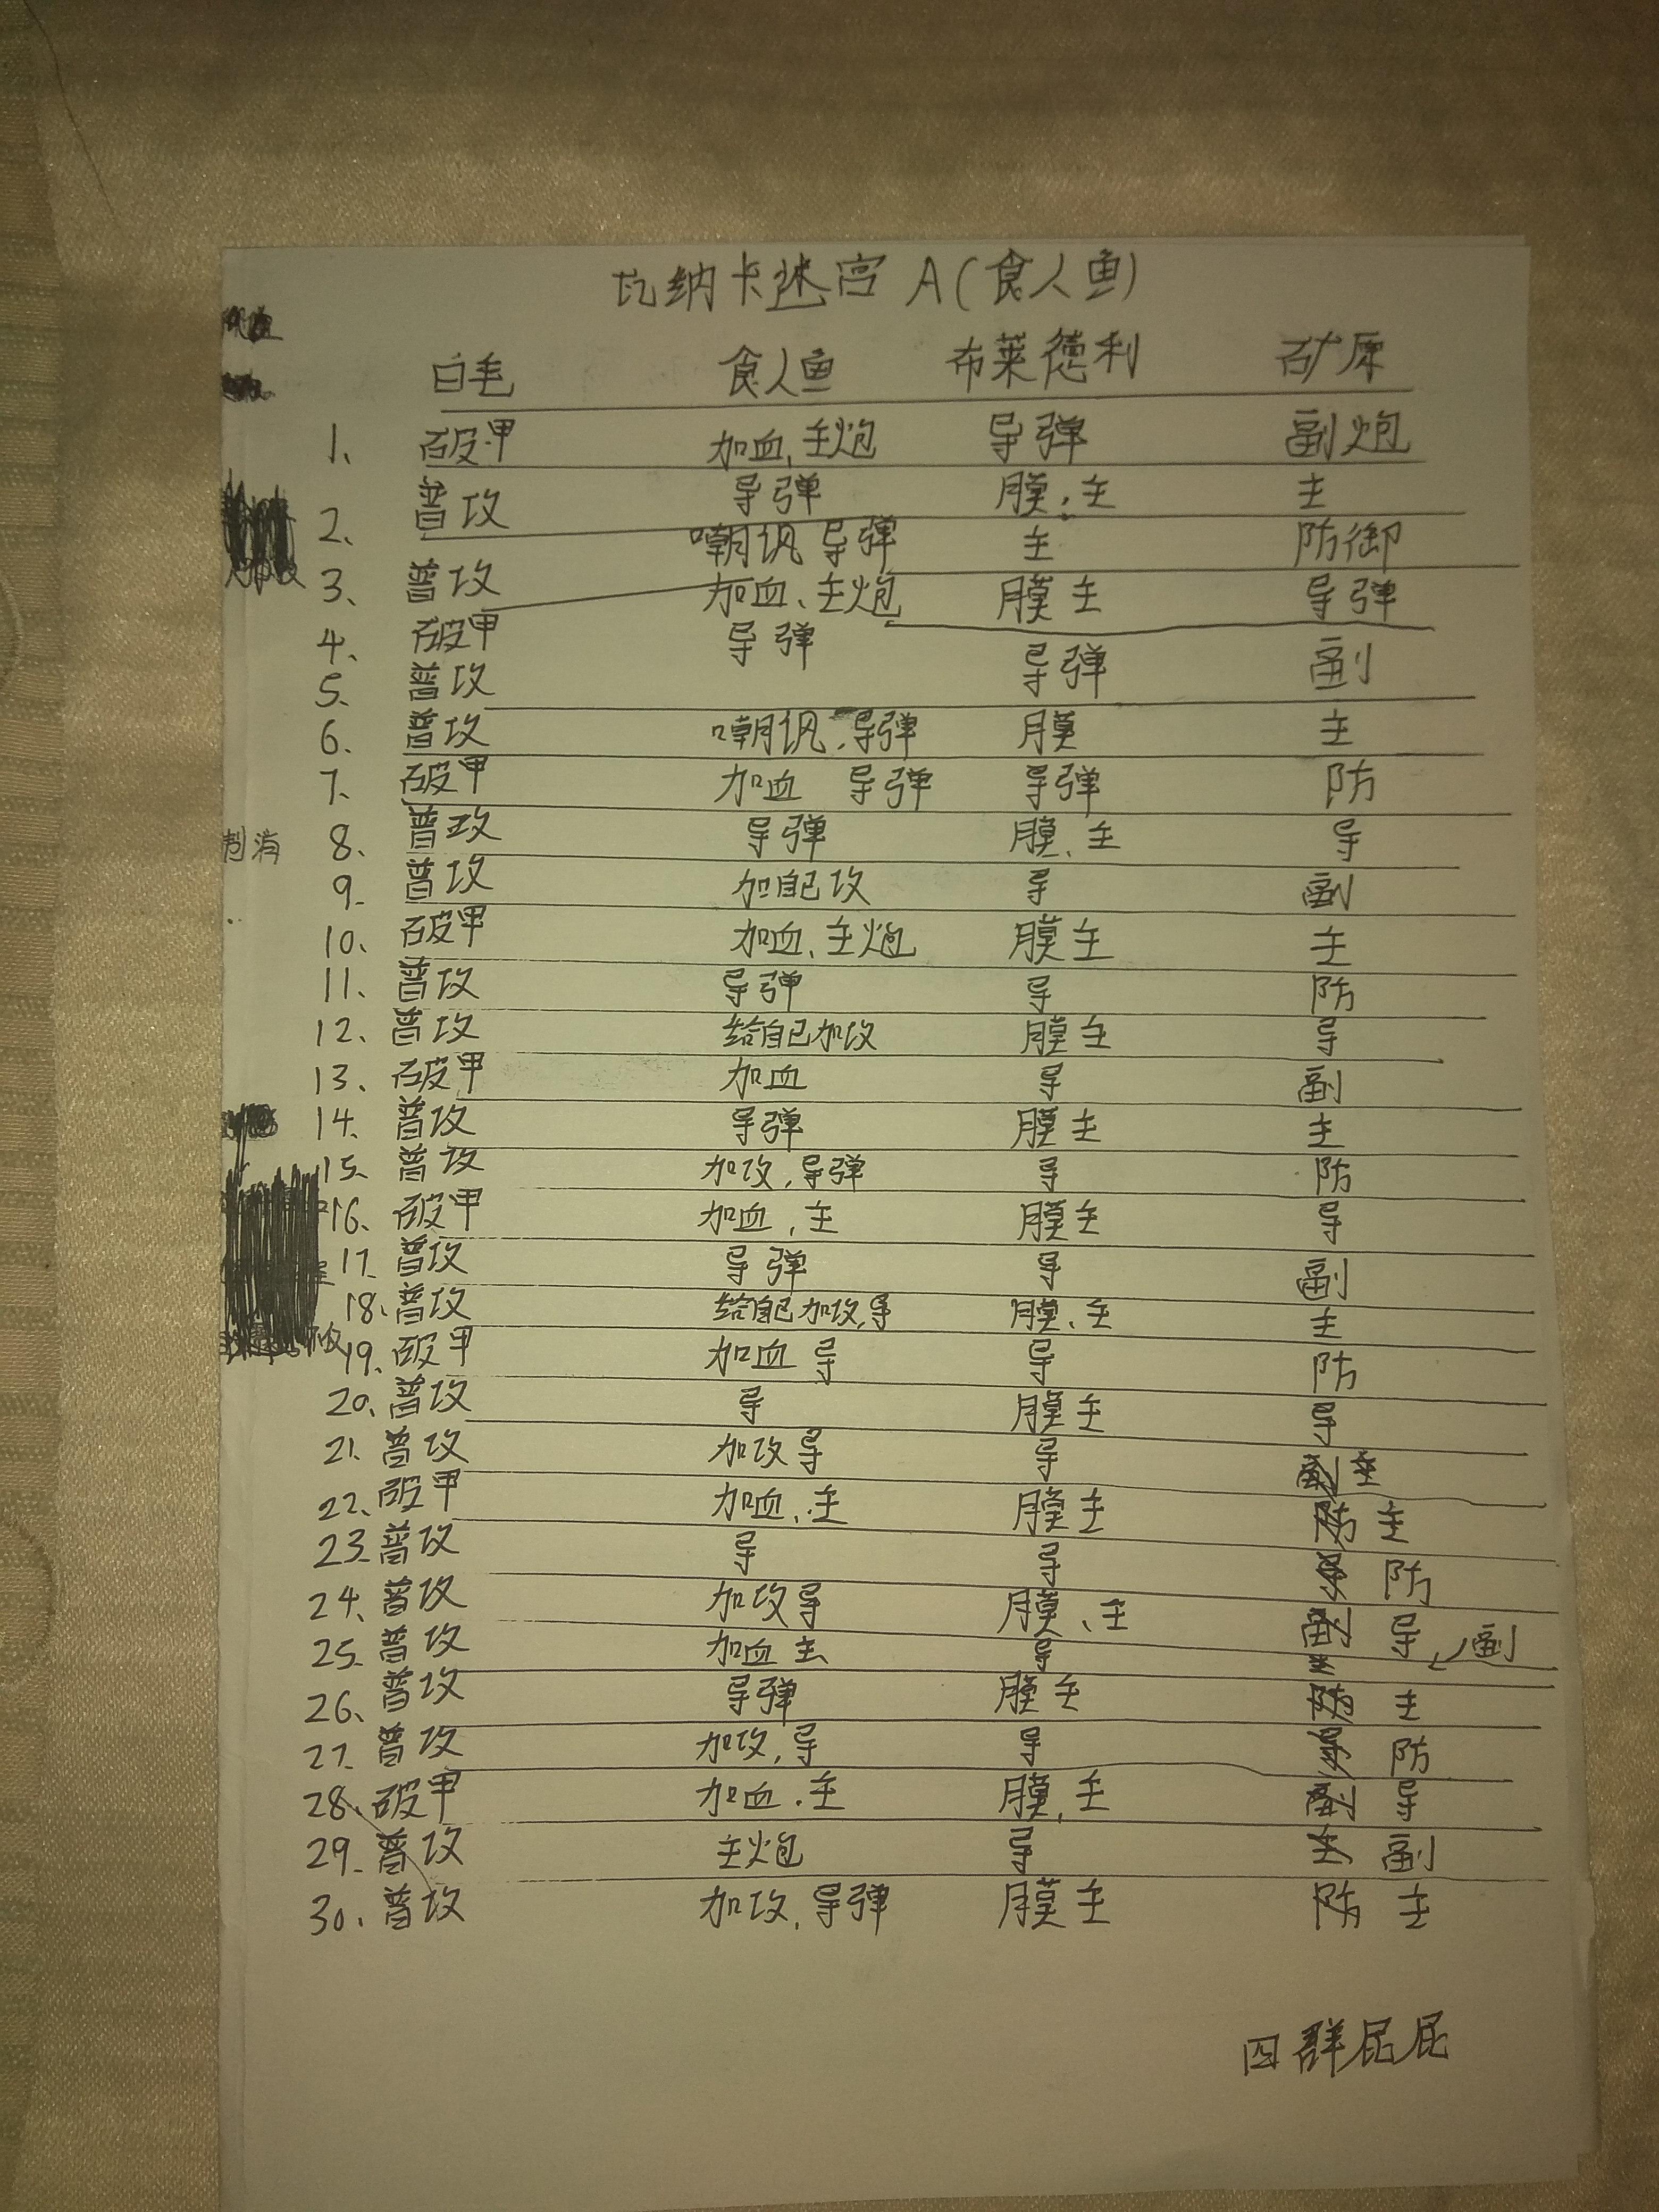 瓦纳卡迷宫 A(食人鱼)
白毛 食人鱼 布莱德利 矿原
1、 破甲 加血、主炮 导弹 副炮
2、 普攻 导弹 膜:主 主
3、 普攻 嘲讽 导弹 主 防御
4、 破甲 加血、主炮 膜主 导弹
5、 普攻 导弹 导弹 副
6、 普攻 嘲讽,导弹 膜 主
7、 破甲 加血 导弹 导弹 防
8、 普攻 导弹 膜、主 导
9、 普攻 加自己攻 导 副
10、 破甲 加血、主炮 膜主 主
11、 普攻 导弹 导 防
12、 普攻 给自己加攻 膜主 导
13、 破甲 加血 导 副
14、 普攻 导弹 膜主 主
15、 普攻 加攻,导弹 导 防
16、 破甲 加血,主 膜主 导
17、 普攻 导弹 导 副
18、 普攻 给自己加攻,导 膜、主 主
19、 破甲 加血 导 导 防
20、 普攻 导 膜主 导
21、 普攻 加攻导 导
22、 破甲 加血、主 膜主 主
23、 普攻 导 导 防
24、 普攻 加攻导 膜、主 导 副
25、 普攻 加血主 导
26、 普攻 导弹 膜主 主
27、 普攻 加攻,导 导 防
28、 破甲 加血.主 膜,主 导
29、 普攻 主炮 导 副
30、 普攻 加攻,导弹 膜主 防 主
四群屁屁